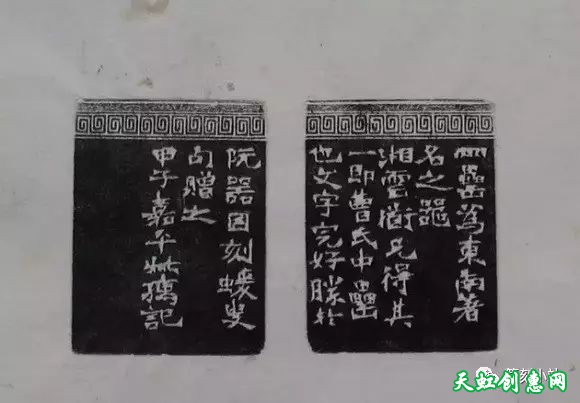 四罍為東南著
名之器
湘雲兄得其
一即曹氏中罍
也文字完好勝於
阮器因刻蝯叟
句贈之
甲午嘉平記
篆刻小站
天虹创意网